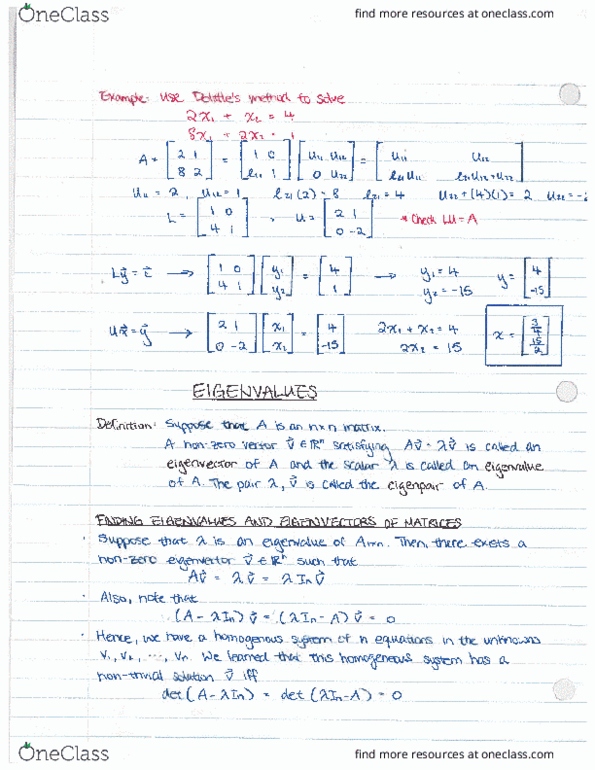 OneClass find more resources at oneclass.com
Example: Use Dolittle's method to solve
2x₁ + x₂ = 4
8x₁ + 2x₂ = 1
A = [2 1; 8 2] = [1 0; l₂₁ 1] [u₁₁ u₁₂; 0 u₂₂] = [u₁₁ u₁₂; l₂₁u₁₁ l₂₁u₁₂+u₂₂]
u₁₁ = 2, u₁₂ = 1 l₂₁(2) = 8 l₂₁ = 4 u₂₂ + (4)(1) = 2 u₂₂ = -2
L = [1 0; 4 1], U = [2 1; 0 -2] * Check LU = A
Ly⃗ = c⃗ → [1 0; 4 1] [y₁; y₂] = [4; 1] → y₁ = 4 y₂ = -15 y = [4; -15]
Ux⃗ = y⃗ → [2 1; 0 -2] [x₁; x₂] = [4; -15] 2x₁ + x₂ = 4 2x₂ = 15 x = [; 15/2]
EIGENVALUES
Definition: Suppose that A is an n×n matrix.
A non-zero vector v⃗ ∈ ℝⁿ satisfying Av⃗ = λv⃗ is called an
eigenvector of A and the scalar λ is called an eigenvalue
of A. The pair λ, v⃗ is called the eigenpair of A.
FINDING EIGENVALUES AND EIGENVECTORS OF MATRICES
· Suppose that λ is an eigenvalue of Aₙₓₙ. Then, there exists a
non-zero eigenvector v⃗ ∈ ℝⁿ such that
Av⃗ = λv⃗ = λIₙv⃗
· Also, note that
(A - λIₙ)v⃗ = (λIₙ - A)v⃗ = 0
· Hence, we have a homogenous system of n equations in the unknowns
v₁, v₂, ..., vₙ. We learned that this homogeneous system has a
non-trivial solution v⃗ iff
det(A - λIₙ) = det(λIₙ - A) = 0
OneClass find more resources at oneclass.com